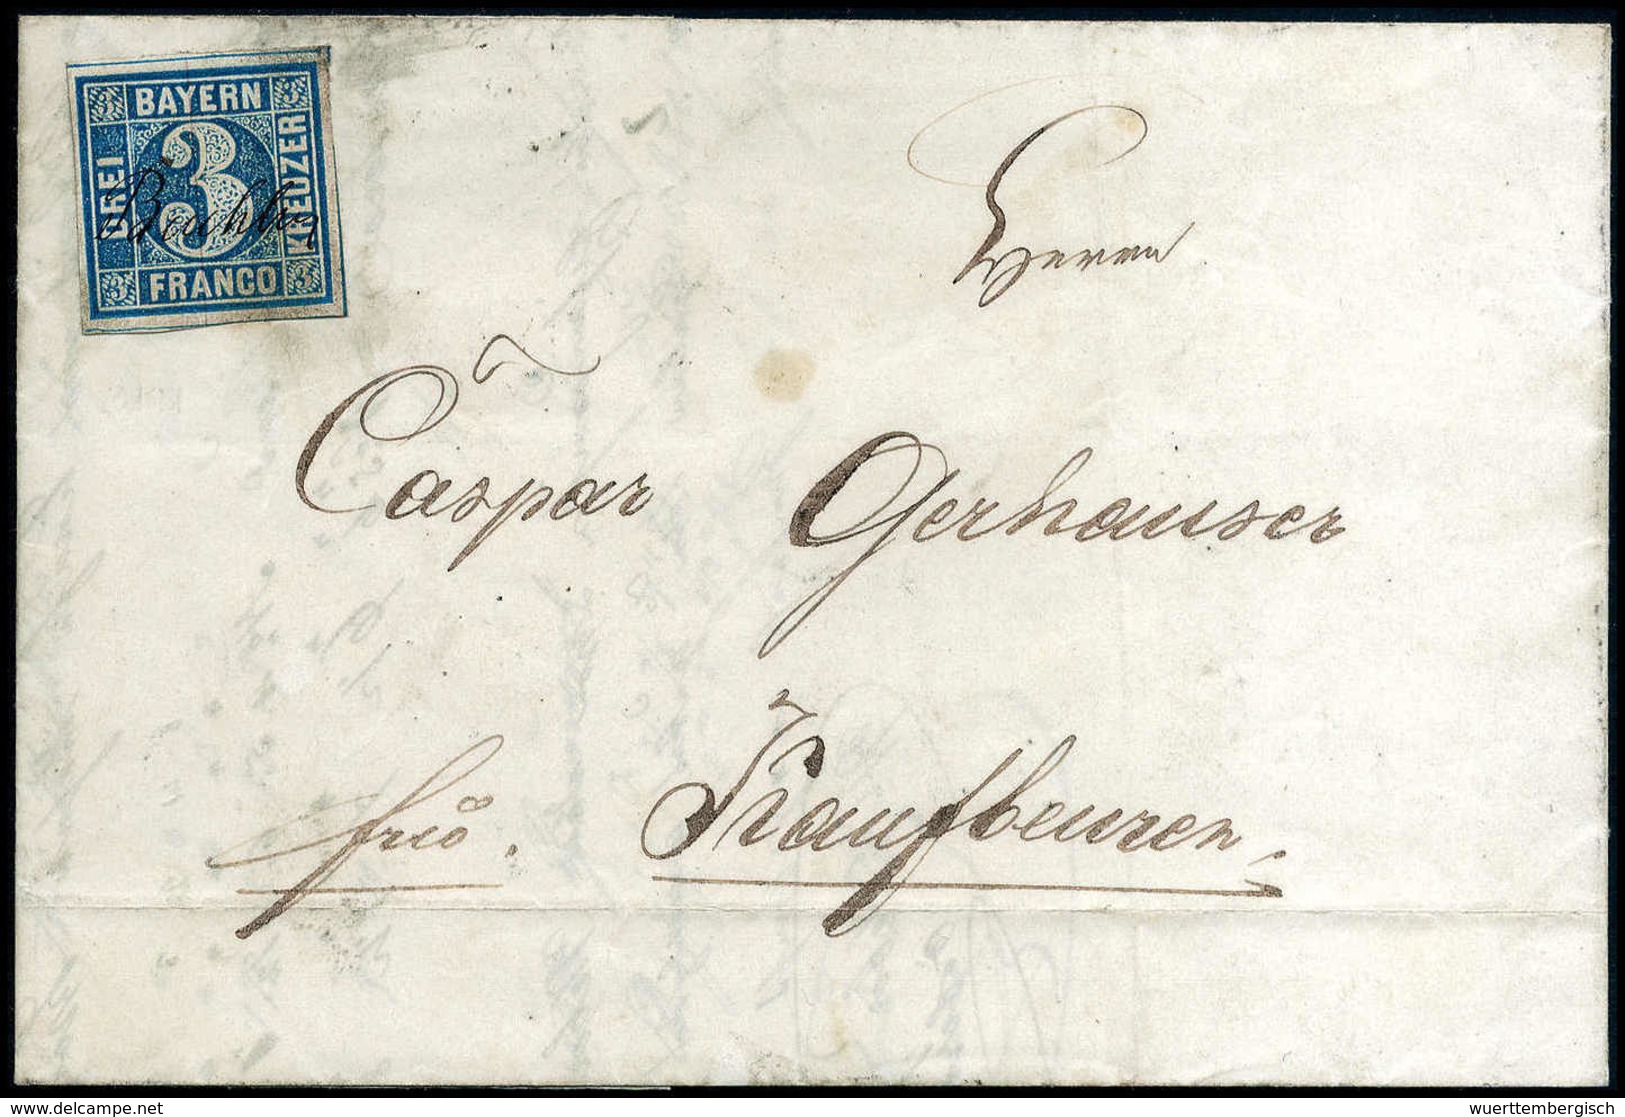 BAYERN
DREI
3
KREUZER
FRANCO
3
3
3
3
Herrn
Caspar Gerhauser
Kaufbeuren
delcampe.net
wuerttembergisch